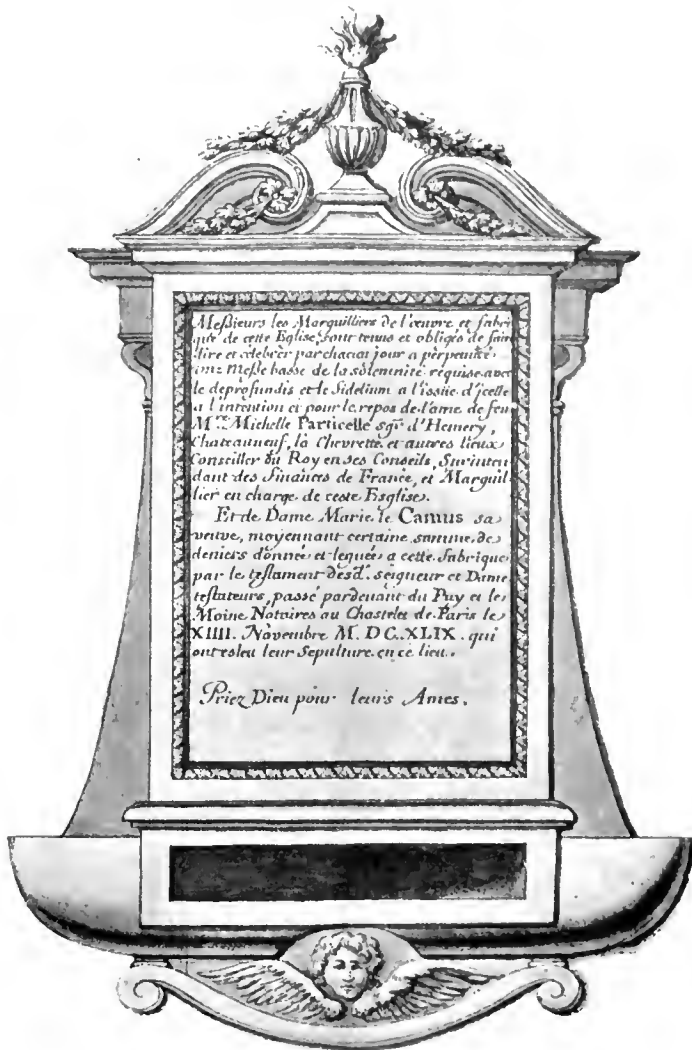 Meßieurs les Marguilliers de l'œuvre et fabri
que de cette Eglise, sont tenus et obligés de fair
dire et celebrer par chacun jour a perpetuité
une Meße basse de la solemnité requise avec
le deprofundis et le fidelium a l'issüe d'jcelle
a l'intention et pour le repos de l'ame de feu
M.re Michelle Particelle sgr. d'Hemery,
Chateauneuf, la Chevrette et autres lieux
Conseiller du Roy en ses Conseils, Surinten
dant des finances de France, et Marguil
lier en charge de ceste Esglise.
Et de Dame Marie le Camus sa
veuve, moyennant certaine somme de
deniers donnée et leguée a cette fabrique
par le testament desd. seigneur et Dame
testateurs, passé pardevant du Puy et le
Moine Notaires au Chastelet de Paris le
XIIII. Novembre M. DC. XLIX. qui
ont esleu leur Sepulture en ce lieu.
Priez Dieu pour leurs Ames.